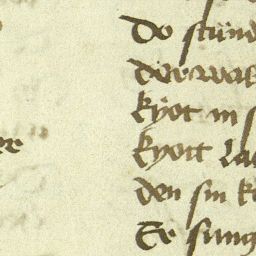 er
Do stünd
Dar was
kyot in s
kyott la
den sin k
Er sung